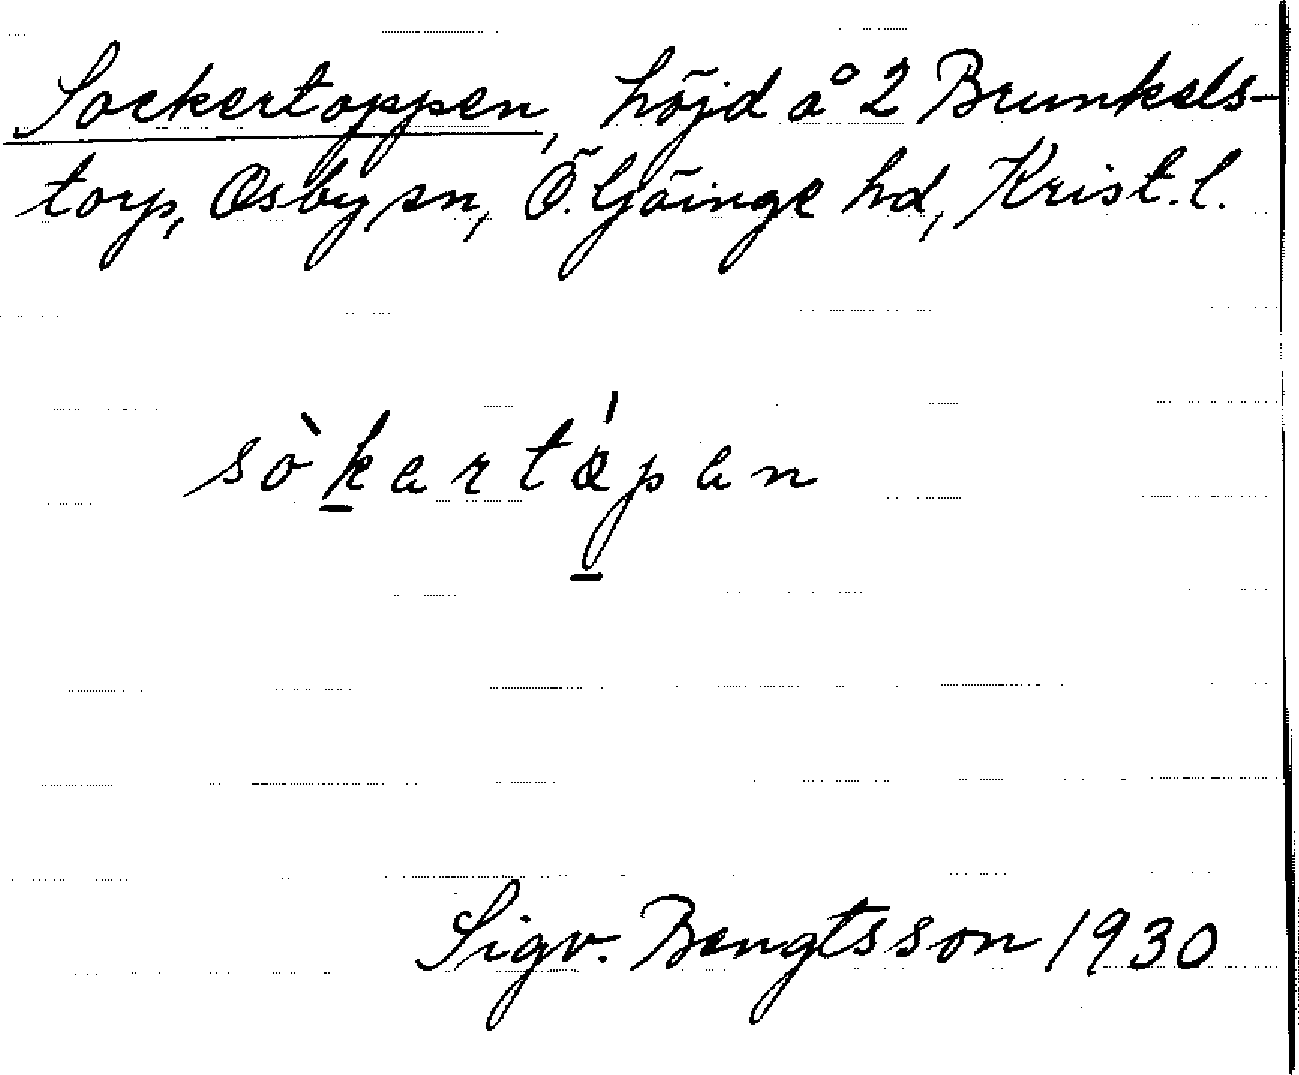 Sockertoppen, höjd å 2 Brunkels-
torp, Osby sn, Ö. Göinge hd, Krist. l.
Sigv. Bengtsson 1930